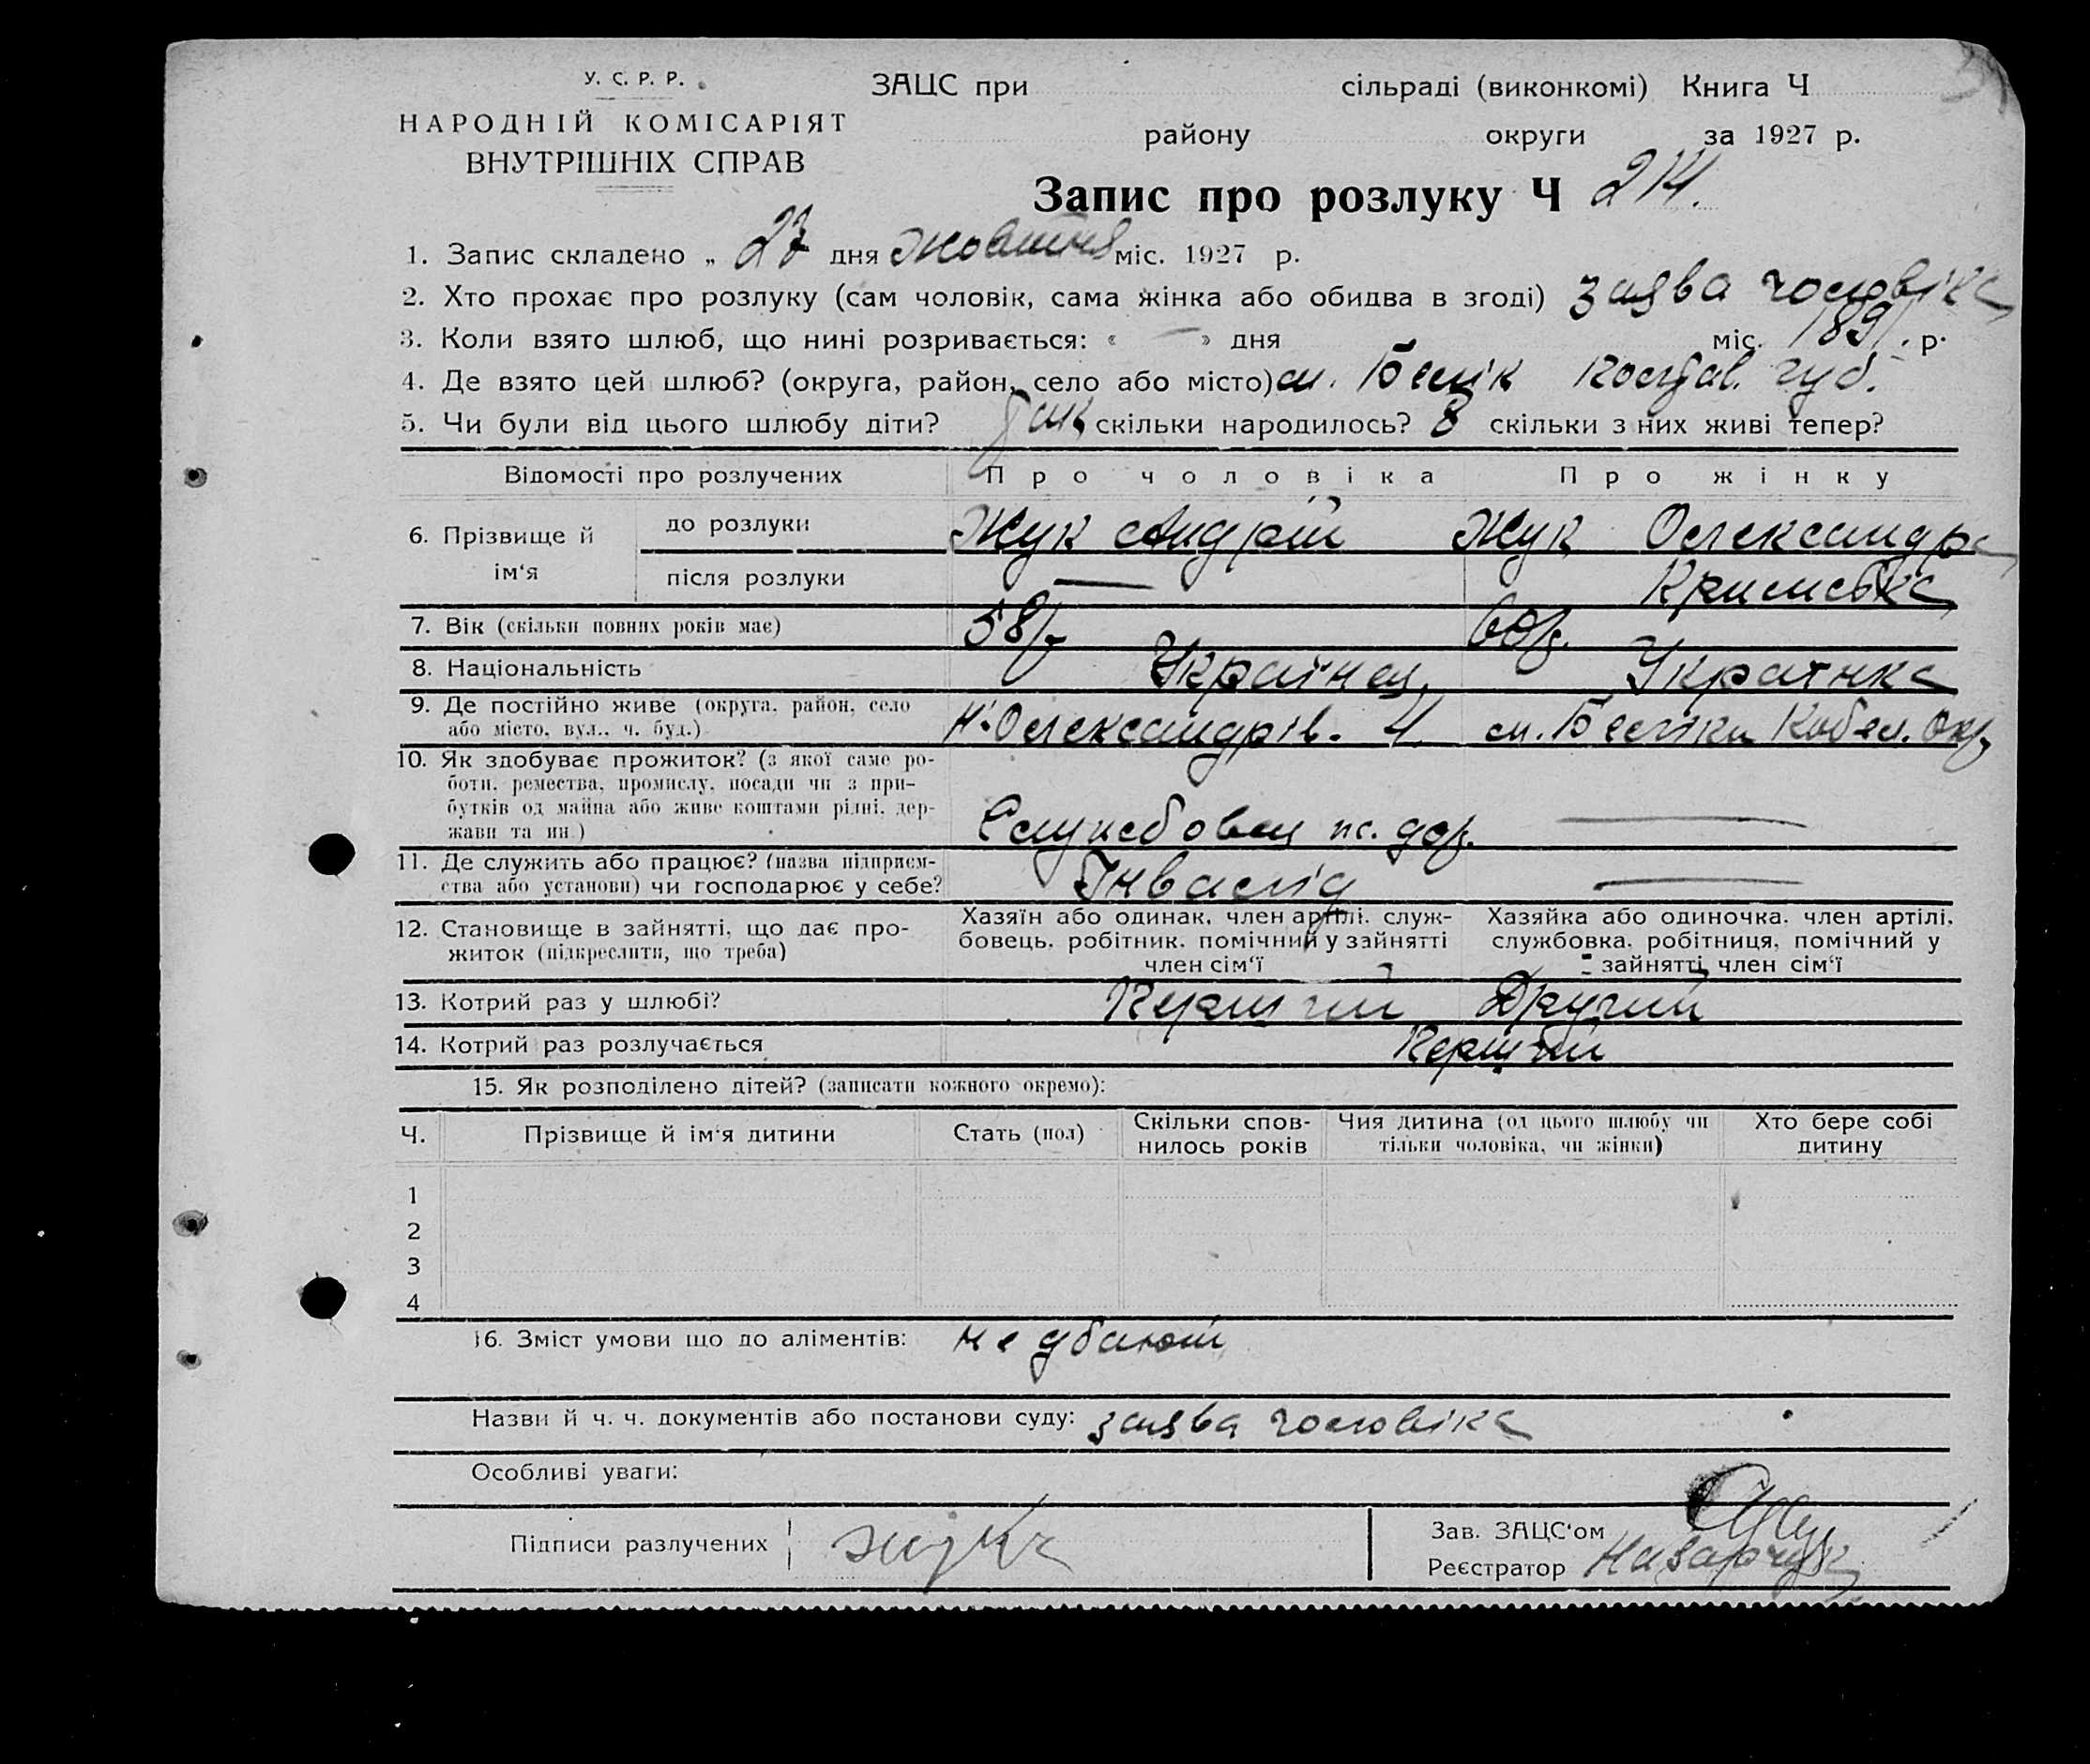 У. С. Р. Р.
НАРОДНІЙ КОМІСАРІЯТ
ВНУТРІШНІХ СПРАВ
ЗАЦС при сільраді (виконкомі) Книга Ч
району округи за 1927 р.
Запис про розлуку Ч 214.
1. Запис складено „ 27 дня жовтня міс. 1927 р.
2. Хто прохає про розлуку (сам чоловік, сама жінка або обидва в згоді) заява чоловіка
3. Коли взято шлюб, що нині розривається: « — » дня міс. 1891. р.
4. Де взято цей шлюб? (округа, район, село або місто) м. Білік Полтав. губ.
5. Чи були від цього шлюбу діти? так скільки народилось? 8 скільки з них живі тепер?
Відомості про розлучених Про чоловіка Про жінку
6. Прізвище й ім‘я до розлуки Жук Андрій Жук Олександра
після розлуки — Кримська
7. Вік (скільки повних років має) 58 р. 60 р.
8. Національність Українец, Українка
9. Де постійно живе (округа, район, село
або місто, вул., ч. буд.) Н-Олександрів. 4. м. Беліки Кобел. Окр.
10. Як здобуває прожиток? (з якої саме ро-
боти, ремества, промислу, посади чи з при-
бутків од майна або живе коштами рідні, дер-
жави та ин.) Службовец пс. дор. —
11. Де служить або працює? (назва підприєм-
ства або установи) чи господарює у себе? Інвалід —
12. Становище в зайнятті, що дає про-
житок (підкреслити, що треба)
Хазяїн або одинак, член артілі, служ-
бовець, робітник, помічний у зайнятті
член сім‘ї
Хазяйка або одиночка, член артілі,
службовка, робітниця, помічний у
зайнятті член сім‘ї
13. Котрий раз у шлюбі? Перший Другий
14. Котрий раз розлучається Перший
15. Як розподілено дітей? (записати кожного окремо):
Ч. Прізвище й ім‘я дитини Стать (пол) Скільки спов-
нилось років Чия дитина (од цього шлюбу чи
тільки чоловіка, чи жінки) Хто бере собі
дитину
1
2
3
4
16. Зміст умови що до аліментів: не дбають
Назви й ч. ч. документів або постанови суду: заява чоловіка
Особливі уваги:
Підписи разлучених Жук
Зав. ЗАЦС‘ом
Реєстратор Назарчук